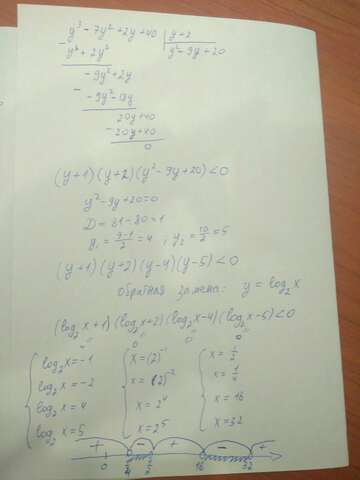 y³ - 7y² + 2y + 40 | y + 2
- y³ + 2y² | y² - 9y + 20
- 9y² + 2y
- - 9y² - 18y
20y + 40
- 20y + 40
0
(y+1)(y+2)(y² - 9y + 20) < 0
y² - 9y + 20 = 0
D = 81 - 80 = 1
y₁ = (9-1)/2 = 4 ; y₂ = 10/2 = 5
(y+1)(y+2)(y-4)(y-5) < 0
Обратная замена: y = log₂x
(log₂x + 1)(log₂x + 2)(log₂x - 4)(log₂x - 5) < 0
0 0 0 0
log₂x = -1 x = (2)⁻¹ x = 1/2
log₂x = -2 x = (2)⁻² x = 1/4
log₂x = 4 x = 2⁴ x = 16
log₂x = 5 x = 2⁵ x = 32
+ - + - +
0 1/4 1/2 16 32